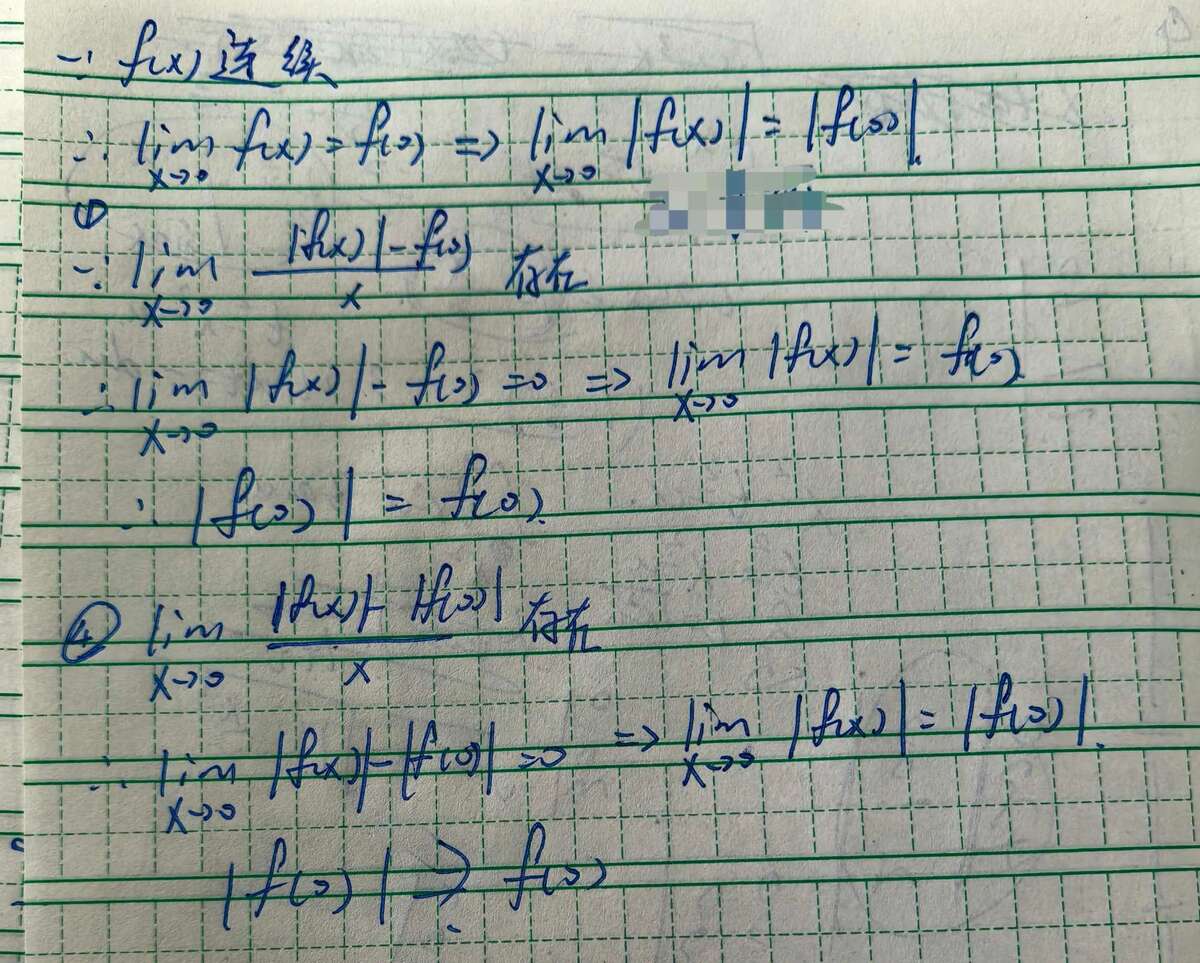 ∵ f(x)连续
∴ lim x→0 f(x)=f(0) ⇒ lim x→0 |f(x)|=|f(0)|.
①
∵ lim x→0 (|f(x)|-f(0))/x 存在
∴ lim x→0 |f(x)|-f(0)=0 ⇒ lim x→0 |f(x)|=f(0)
∴ |f(0)|=f(0).
④ lim x→0 (|f(x)|-|f(0)|)/x 存在
∴ lim x→0 |f(x)|-|f(0)|=0 ⇒ lim x→0 |f(x)|=|f(0)|.
|f(0)| f(0)